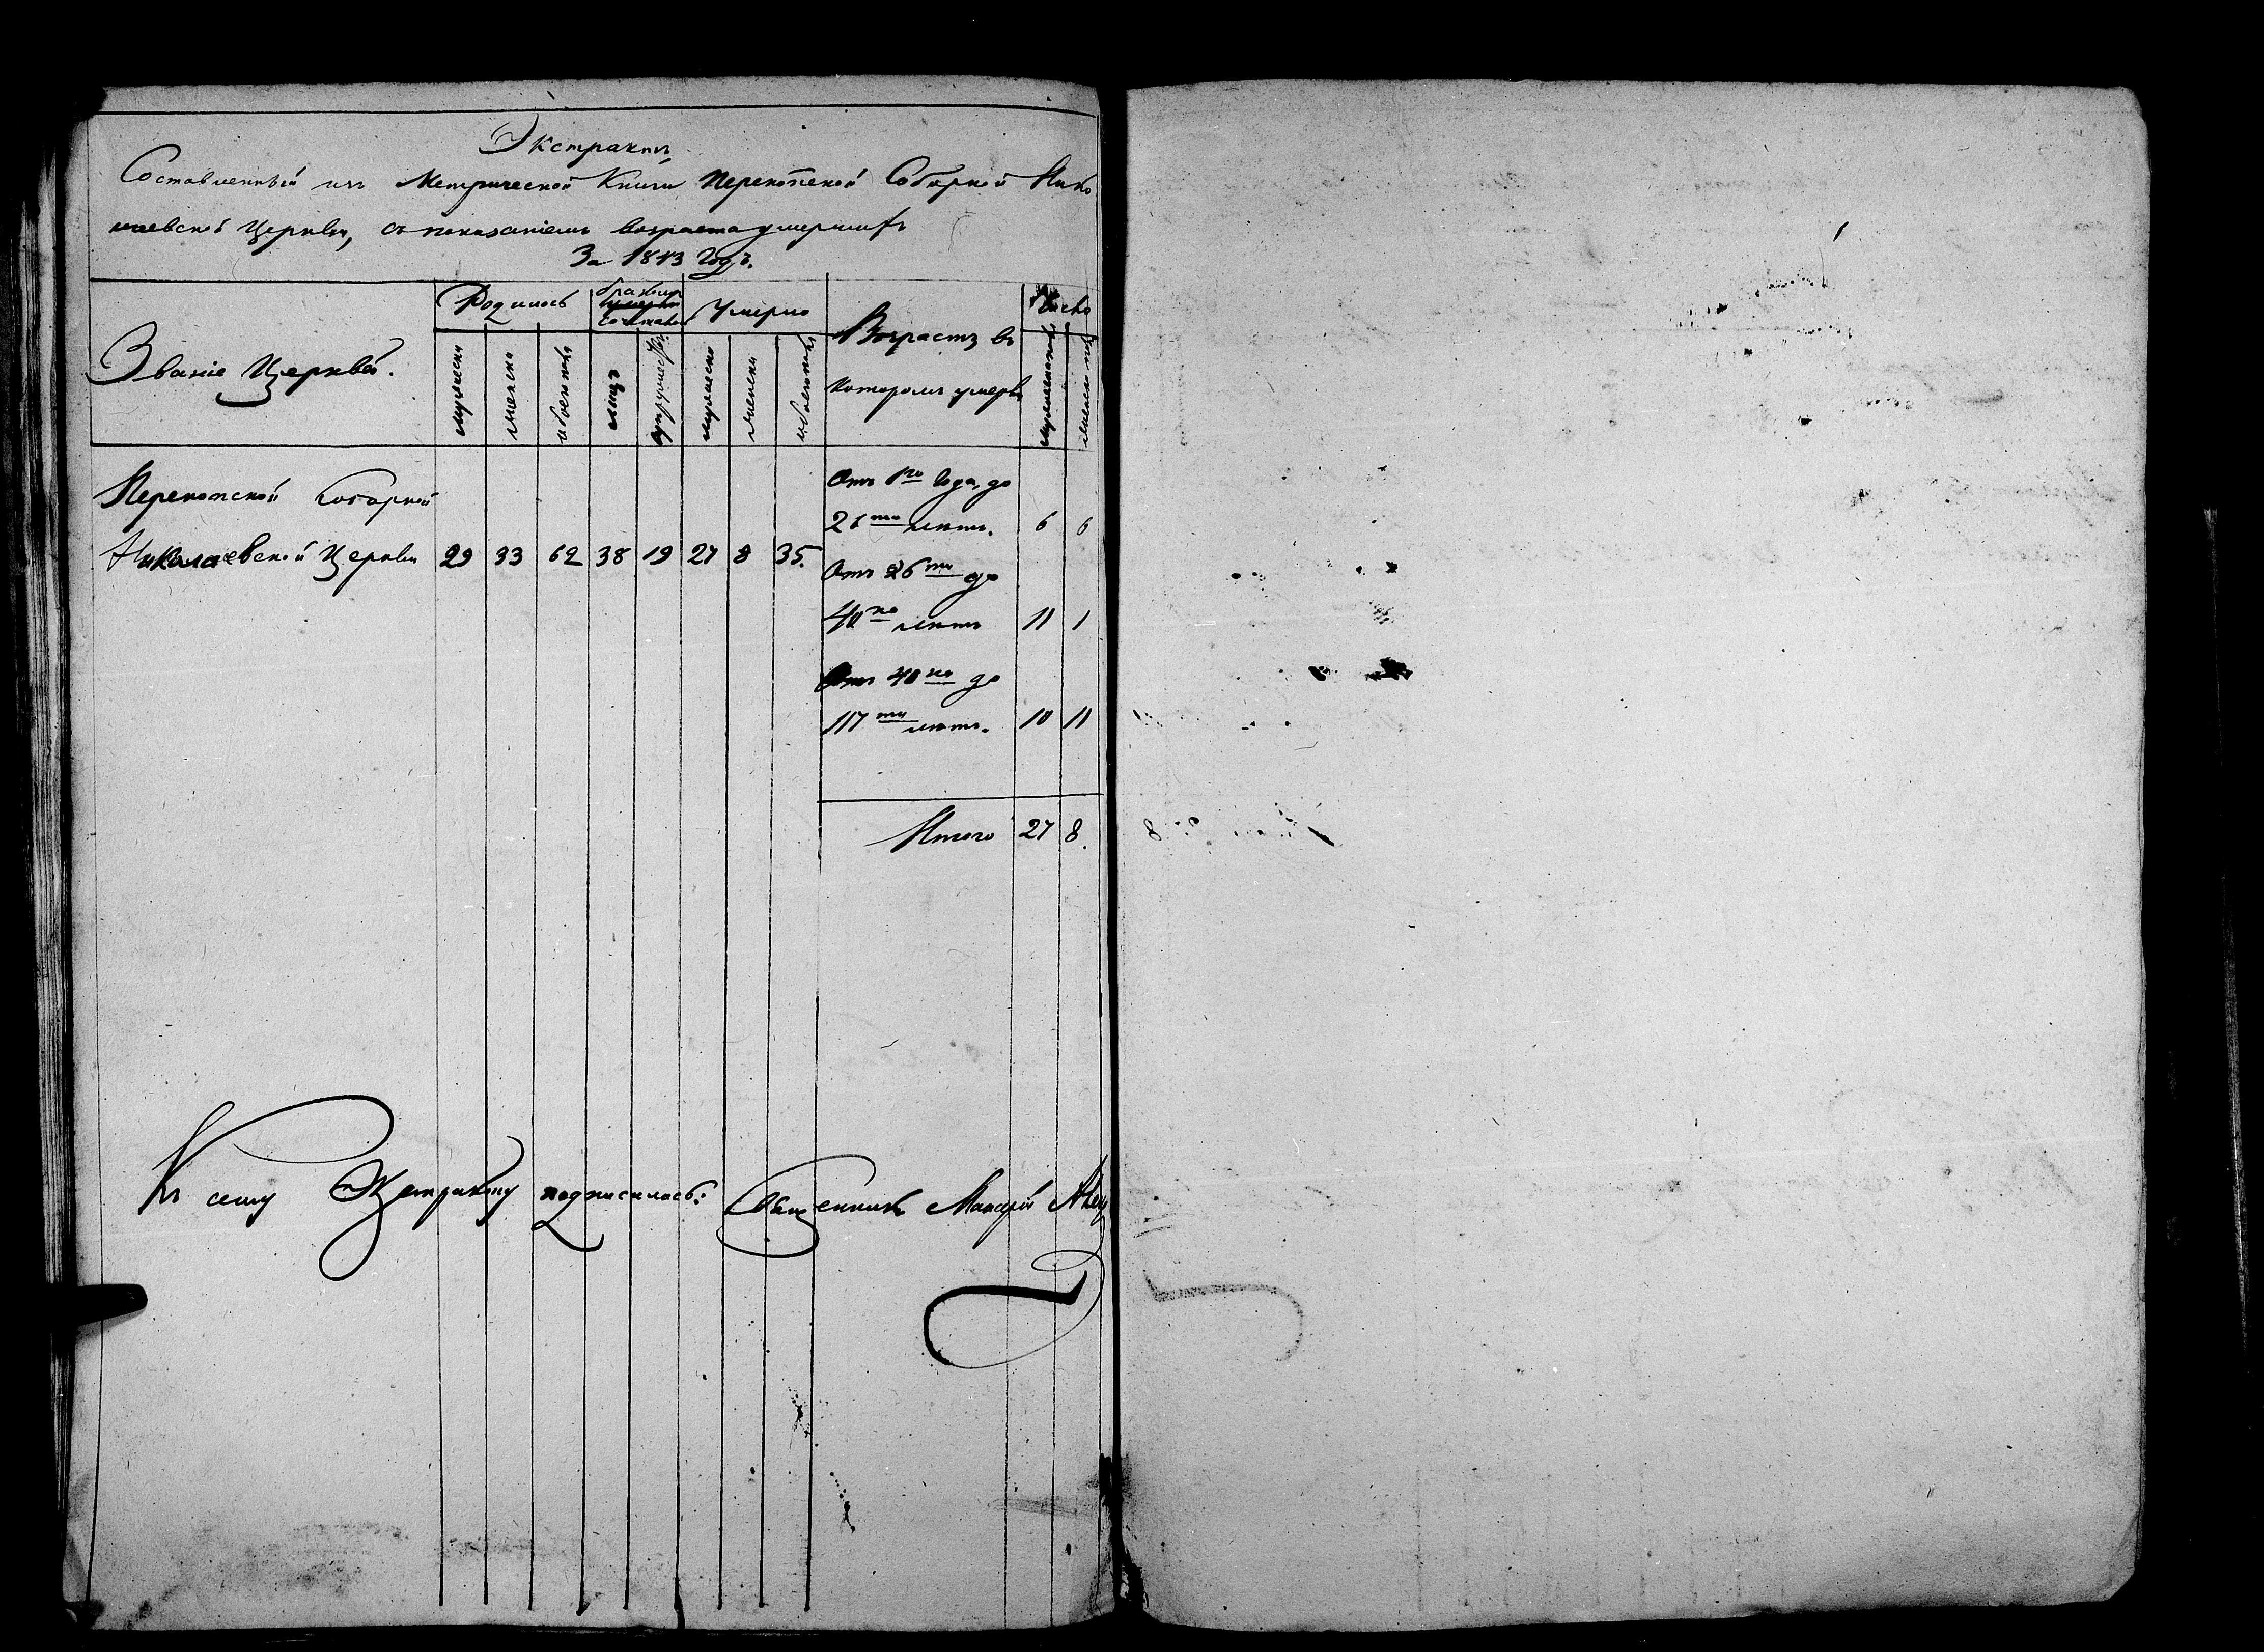 Экстрактъ
Составленный изъ Метрической Книги Перекопской Соборной Нико
лаевской Церкви, съ показаніемъ возраста умершихъ
За 1843 Годъ.
Званіе Церквей.
Родилось
бракомъ
сочетано
Умерло
Возрастъ въ
которомъ умерли
Число
мужеска
женска
обоего пола
лицъ
супружествъ
мужеска
женска
обоего пола
мужеска пола
женска пола
Перекопской Соборной
Николаевской Церкви 29 33 62 38 19 27 8 35.
Отъ 1го Года, до
26ти летъ. 6 6
Отъ 26ти до
40ка летъ 11 1
Отъ 40ка до
117ти летъ. 10 11
Итого 27 8.
Къ сему Экстракту подписались: Священникъ Макарій